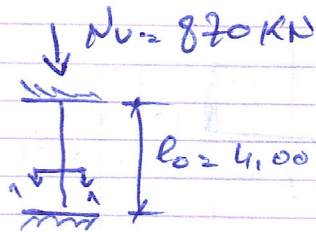 Nu = 870 KN
l₀ = 4,00
1 1